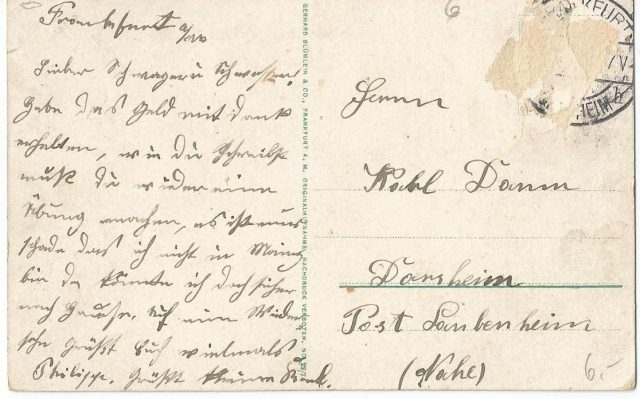 Frankfurt
Lieber Schwager u Schwester,
Habe das Geld mit dank
erhalten, wie du schreibst
mußt du wieder eine
Übung machen, es ist nur
schade das ich nicht in Mainz
bin da könnte ich doch eher
nach Hause. Auf ein Wieder
sehn Grüßt Euch vielmals
Grüßt
GERHARD BLÜMLEIN & CO., FRANKFURT A. M. ORIGINALAUFNAHME. NACHDRUCK VERBOTEN.
KFURT
HEIM
6
Herrn
Damm
Dorsheim
Post Laubenheim
(Nahe)
6.-